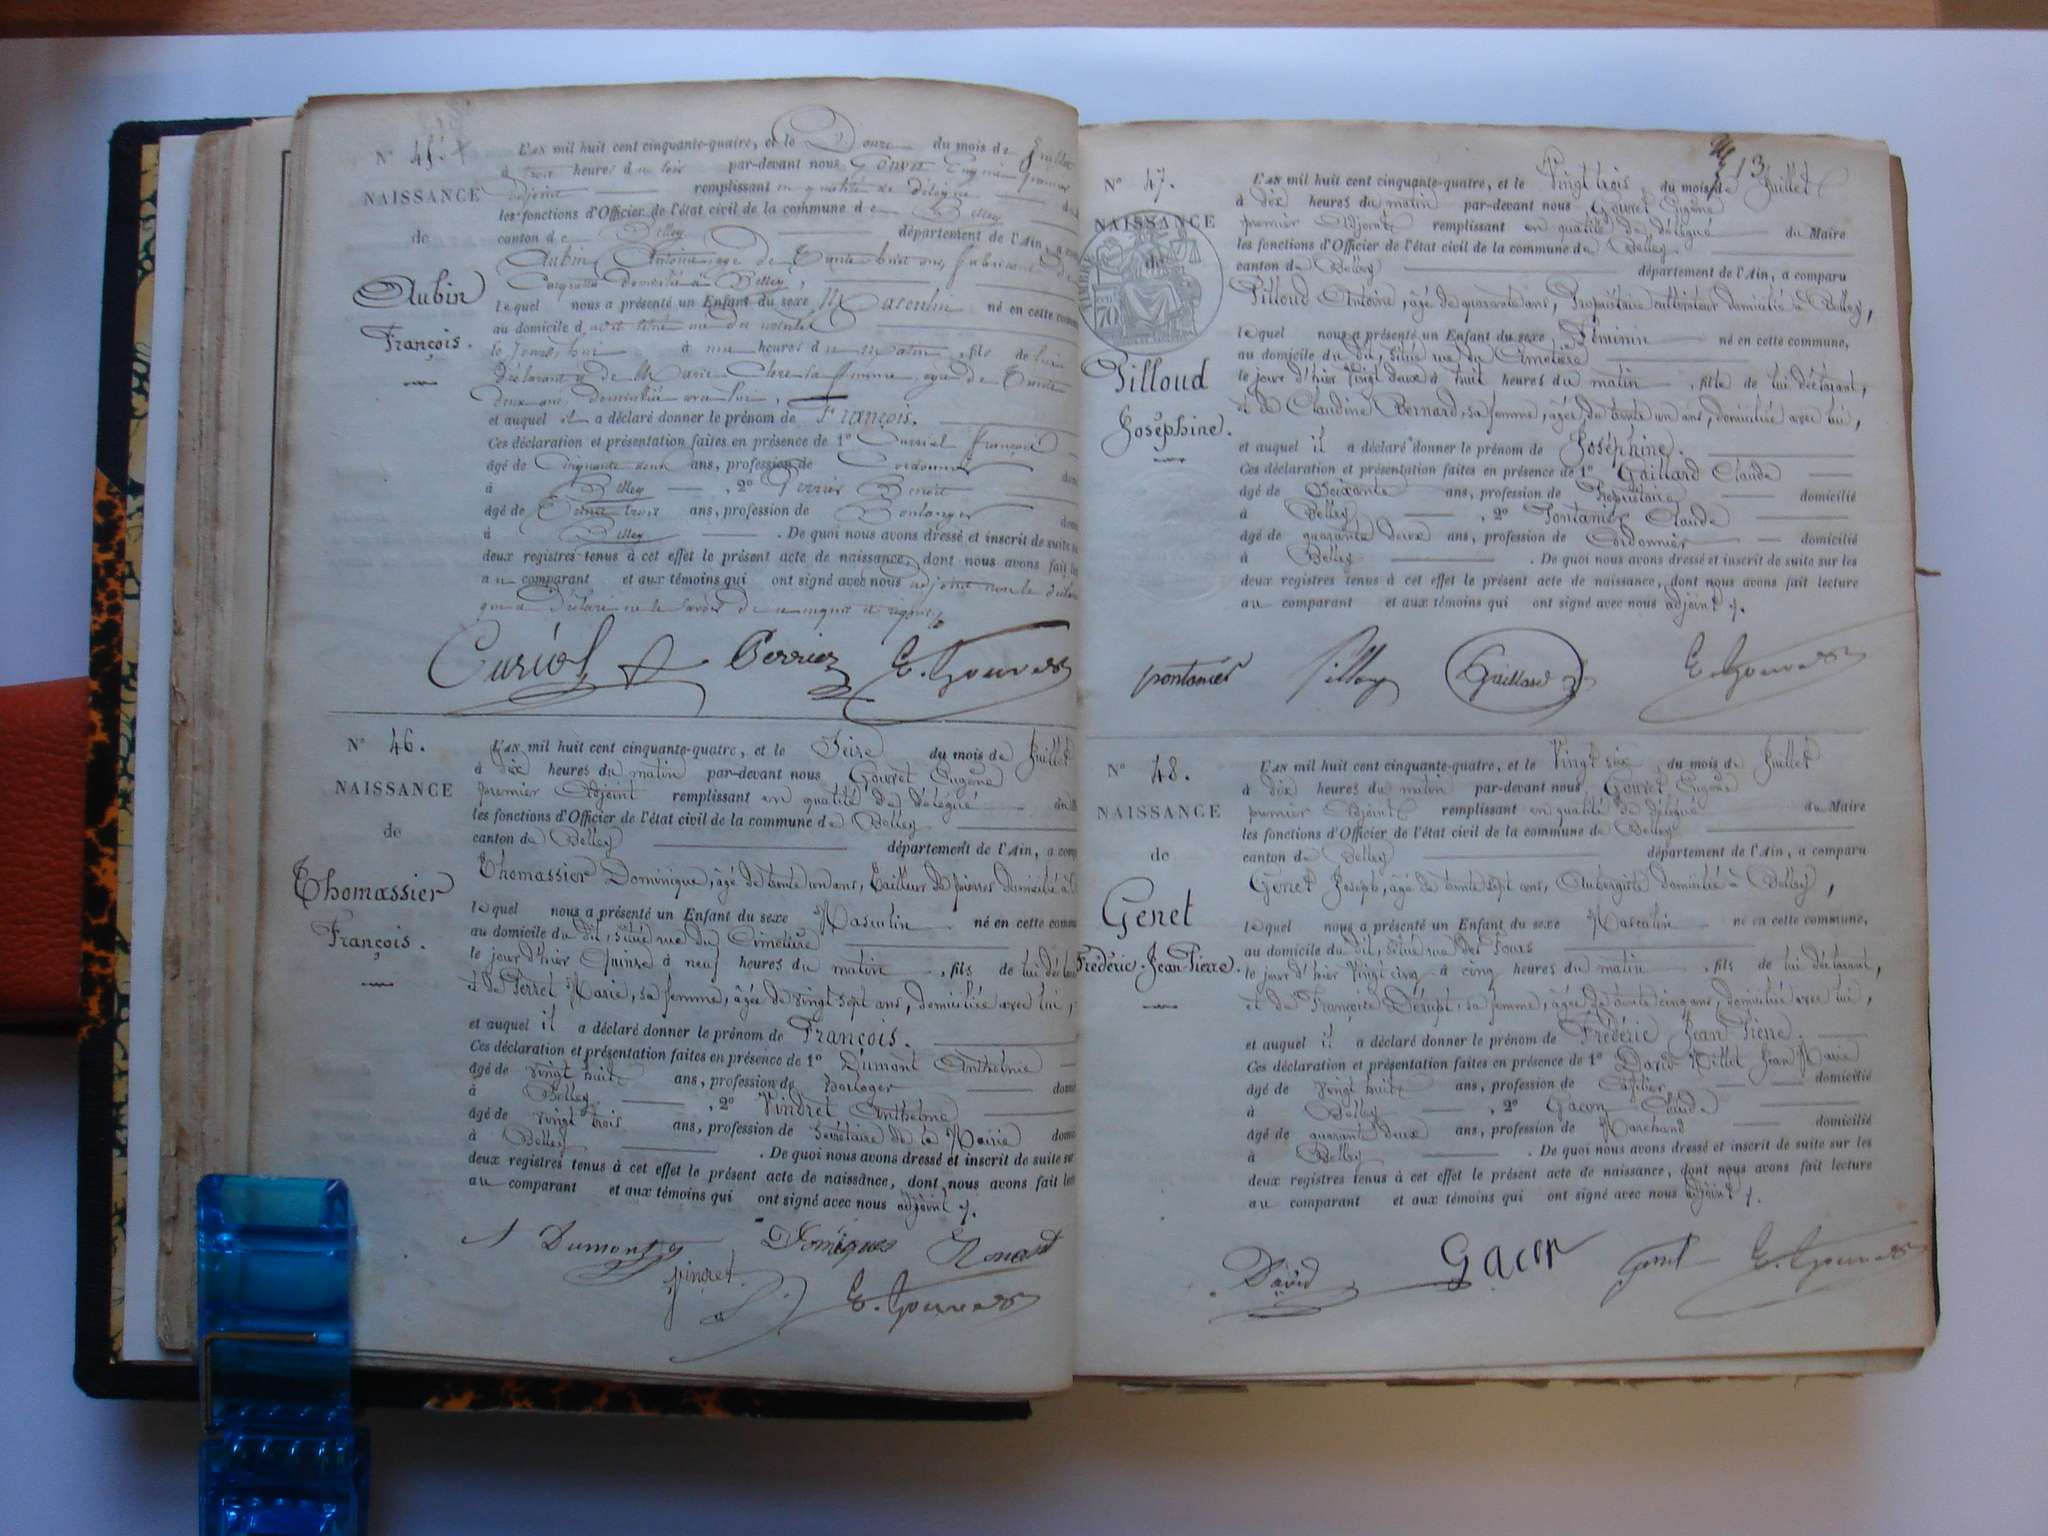 N° 45.
NAISSANCE
de
Aubin
François.
L'AN mil huit cent cinquante-quatre, et le Douze du mois de Juillet
à trois heures du soir par-devant nous Gouvret Eugène premier
adjoint remplissant en qualité de délégué
les fonctions d'Officier de l'état civil de la commune de Belley
canton de Belley département de l'Ain, a
Aubin Antoine, âgé de trente huit ans, fabricant de
Casquettes domicilié à Belley,
lequel nous a présenté un Enfant du sexe Masculin né en cette
au domicile
le jour d'hui à une heures du matin, fils de lui
déclarant & de Marie Clerc sa femme, âgée de trente
deux ans, domiciliée avec lui,
et auquel il a déclaré donner le prénom de François.
Ces déclaration et présentation faites en présence de 1° Curriol François
âgé de Cinquante ans, profession de Cordonnier
à Belley, 2° Perrier Benoit
âgé de trente trois ans, profession de Boulanger
à Belley. De quoi nous avons dressé et inscrit de suite
deux registres tenus à cet effet le présent acte de naissance, dont nous avons fait
au comparant et aux témoins qui ont signé avec nous adjoint non le
qui a déclaré ne le savoir de ce enquis et requis
Curiol Perrier E. Gouvret
N° 46.
NAISSANCE
de
Thomassier
François.
L'AN mil huit cent cinquante-quatre, et le Seize du mois de Juillet
à dix heures du matin par-devant nous Gouvret Eugène
premier Adjoint remplissant en qualité de délégué
les fonctions d'Officier de l'état civil de la commune de Belley
canton de Belley département de l'Ain, a
Thomassier Dominique, âgé de trente un ans, Tailleur de pierres domicilié à
lequel nous a présenté un Enfant du sexe Masculin né en cette
au domicile du dit, situé rue du Cimetière
le jour d'hier Quinze à neuf heures du matin, fils de lui
et de Perret Marie, sa femme, âgée de vingt sept ans, domiciliée avec lui,
et auquel il a déclaré donner le prénom de François.
Ces déclaration et présentation faites en présence de 1° Dumont Anthelme
âgé de vingt huit ans, profession de horloger
à Belley, 2° Vindret Anthelme
âgé de vingt trois ans, profession de Secrétaire de la Mairie
à Belley. De quoi nous avons dressé et inscrit de suite
deux registres tenus à cet effet le présent acte de naissance, dont nous avons fait
au comparant et aux témoins qui ont signé avec nous adjoint /.
A Dumont
Vindret E. Gouvret
13
N° 47.
NAISSANCE
de
TIMBRE
70
Pilloud
Joséphine.
L'AN mil huit cent cinquante-quatre, et le Vingt trois du mois de Juillet
à dix heures du matin par-devant nous Gouvret Eugène
premier Adjoint remplissant en qualité de délégué du Maire
les fonctions d'Officier de l'état civil de la commune de Belley
canton de Belley département de l'Ain, a comparu
Pilloud Antoine, âgé de quarante ans, Propriétaire cultivateur domicilié à Belley,
lequel nous a présenté un Enfant du sexe Féminin né en cette commune,
au domicile du dit, situé rue du Cimetière
le jour d'hier Vingt deux à huit heures du matin, fille de lui déclarant,
et de Claudine Bernard, sa femme, âgée de trente un ans, domiciliée avec lui,
et auquel il a déclaré donner le prénom de Joséphine.
Ces déclaration et présentation faites en présence de 1° Gaillard Claude
âgé de Soixante ans, profession de Propriétaire domicilié
à Belley, 2° Fontanier Claude
âgé de quarante deux ans, profession de Cordonnier domicilié
à Belley. De quoi nous avons dressé et inscrit de suite sur les
deux registres tenus à cet effet le présent acte de naissance, dont nous avons fait lecture
au comparant et aux témoins qui ont signé avec nous adjoint /.
fontanier Gaillard E. Gouvret
N° 48.
NAISSANCE
de
Genet
Frédéric-Jean-Pierre.
L'AN mil huit cent cinquante-quatre, et le Vingt six du mois de Juillet
à dix heures du matin par-devant nous Gouvret Eugène
premier Adjoint remplissant en qualité de délégué du Maire
les fonctions d'Officier de l'état civil de la commune de Belley
canton de Belley département de l'Ain, a comparu
Genet Joseph, âgé de trente sept ans, Aubergiste domicilié à Belley,
lequel nous a présenté un Enfant du sexe Masculin né en cette commune,
au domicile du dit, situé rue des Fours
le jour d'hier Vingt cinq à cinq heures du matin, fils de lui déclarant,
et de Françoise Dérupt, sa femme, âgée de trente cinq ans, domiciliée avec lui,
et auquel il a déclaré donner le prénom de Frédéric Jean Pierre.
Ces déclaration et présentation faites en présence de 1° David Millet Jean Marie
âgé de vingt huit ans, profession de domicilié
à Belley, 2° Gacon Claude
âgé de quarante deux ans, profession de Marchand domicilié
à Belley. De quoi nous avons dressé et inscrit de suite sur les
deux registres tenus à cet effet le présent acte de naissance, dont nous avons fait lecture
au comparant et aux témoins qui ont signé avec nous adjoint /.
David Gacon Genet E. Gouvret